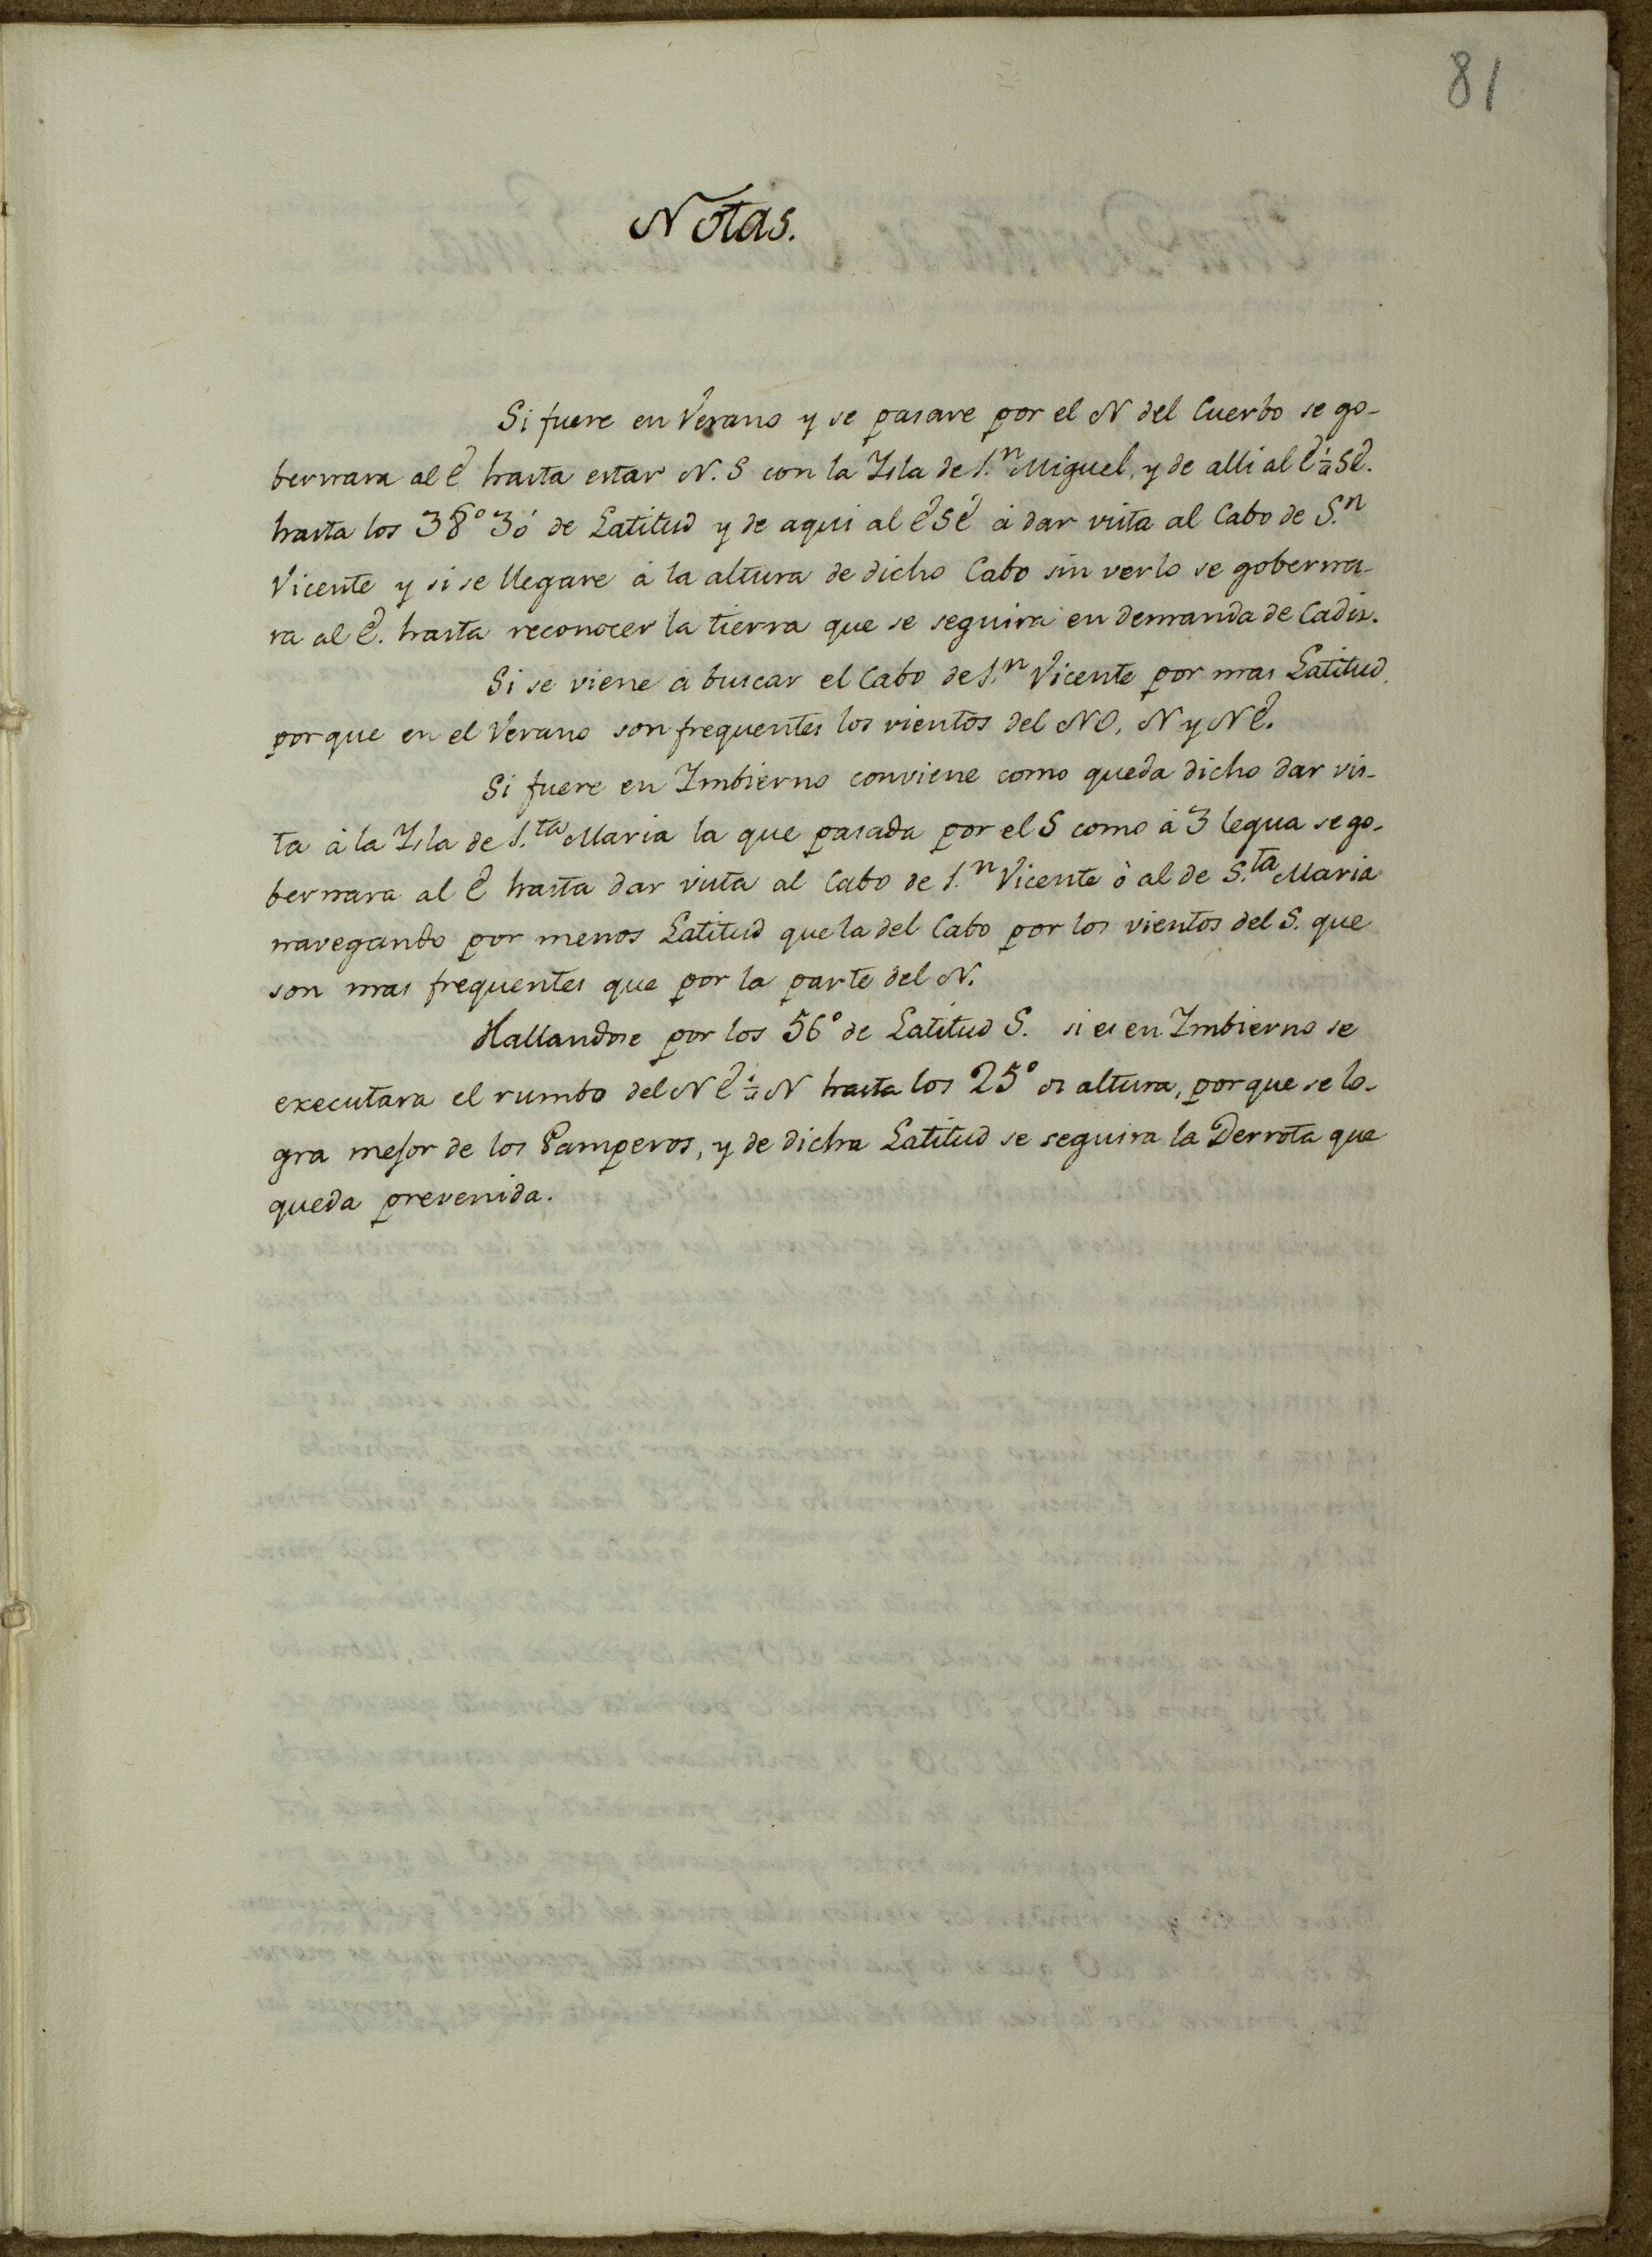 81
Notas.
Si fuere en Verano y se pasare por el N del Cuerbo se go-
bernara al E hasta estar N. S con la Isla de S.n Miguel, y de alli al E 1/4 SE.
hasta los 38° 30' de Latitud y de aqui al ESE á dar vista al Cabo de S.n
Vicente y si se llegare á la altura de dicho Cabo sin verlo se goberna-
ra al E. hasta reconocer la tierra que se seguira en demanda de Cadis.
Si se viene á buscar el Cabo de S.n Vicente por mas Latitud,
porque en el Verano son frequentes los vientos del NO, N y NE.
Si fuere en Imbierno conviene como queda dicho dar vis-
ta á la Isla de S.ta Maria la que pasada por el S como á 3 legua se go-
bernara al E hasta dar vista al Cabo de S.n Vicente ò al de S.ta Maria
navegando por menos Latitud que la del Cabo por los vientos del S. que
son mas frequentes que por la parte del N.
Hallandose por los 56° de Latitud S. si es en Imbierno se
executara el rumbo del NE 1/4 N hasta los 25° de altura, porque se lo-
gra mejor de los Pamperos, y de dicha Latitud se seguira la Derrota que
queda prevenida.